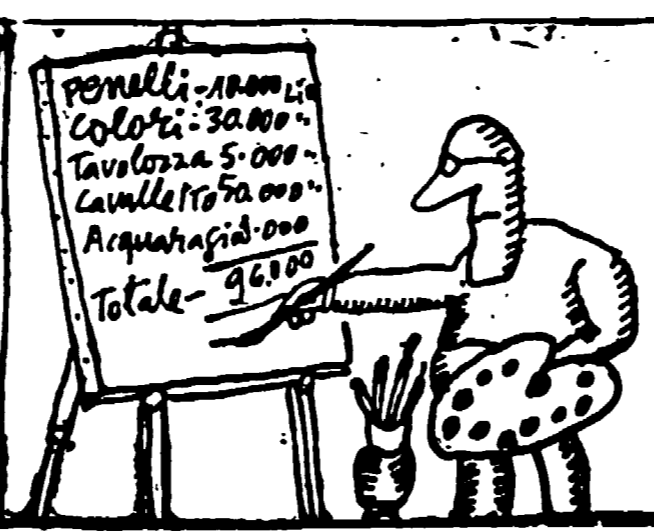 Penelli - 10.000 Li
Colori: 30.000 "
Tavolozza 5.000 "
Cavalletto 50.000 "
Acquaragia 1.000
Totale - 96.000